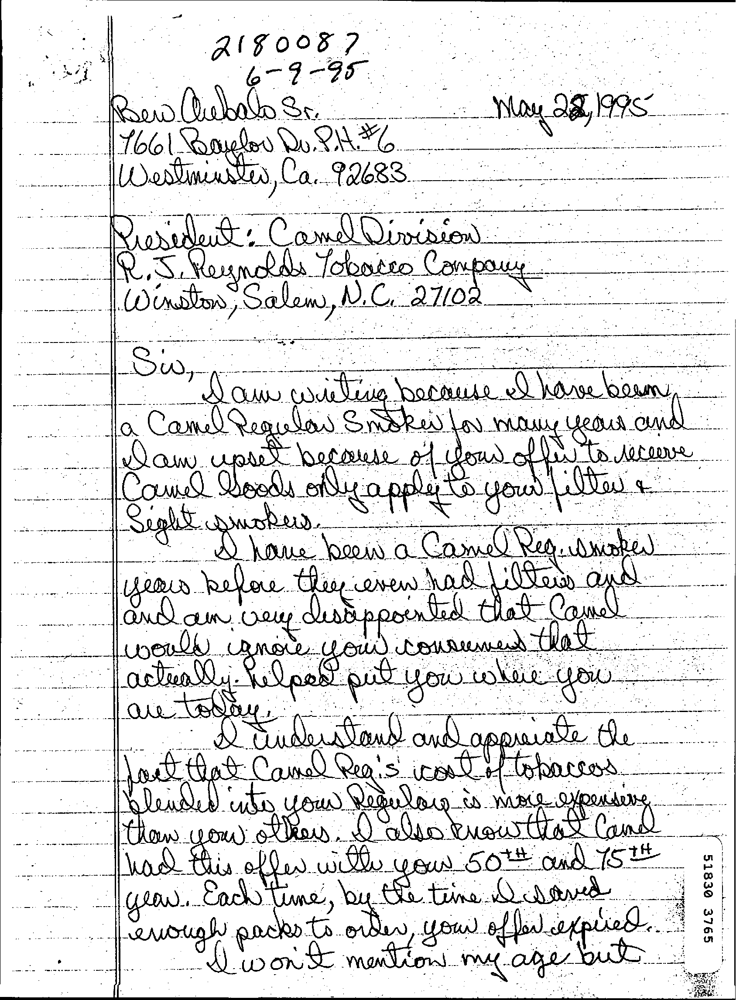 2180087
6-9-95
Ben Archbalo Sr.
May 28, 1995
7661 Baylor Dr. P.H. #6
Westminster, Ca. 92683
President: Camel Division
R. J. Reynolds Tobacco Company
Winston, Salem, N.C. 27102
Sir,
I am writing because I have been
a Camel Regular Smoker for many years and
I am upset because of your offer to receive
Camel Goods only apply to your filter &
Light smokers.
I have been a Camel Reg. smoker
years before they even had filters and
and am very disappointed that Camel
would ignore your consumers that
actually helped put you where you
are today.
I understand and appreiate the
fact that Camel Reg's cost of tobaccos
blended into your Regulars is more expensive
than your others. I also know that Camel
had this offer with your 50TH and 75TH
year. Each time, by the time I saved
enough packs to order, your offer expired.
I won't mention my age but
51830 3765